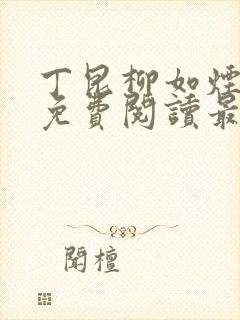 丁昆柳如煙
免費閱讀最
聞檀